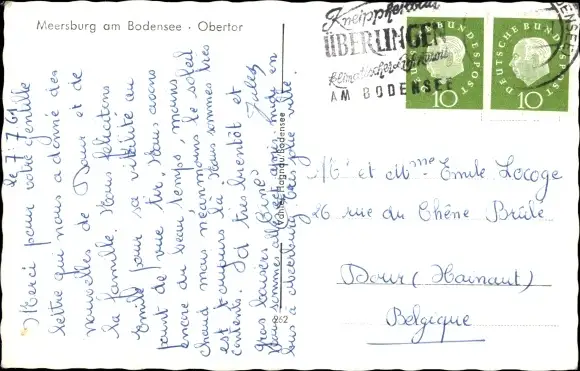 Meersburg am Bodensee · Obertor
le 7.7.61
Merci pour votre gentille
lettre qui nous a donné des
nouvelles de Dour et de
la famille. Nous félicitons
Emile pour sa vitalité au
point de vue tir. Nous avons
encore du beau temps, moins
chaud mais néanmoins le soleil
est toujours là. Nous sommes très
contents. A très bientôt et
gros baisers
Nous sommes après-midi en
bus à Meersburg très ville.
Kneippheilbad
ÜBERLINGEN
AM BODENSEE
DEUTSCHE BUNDESPOST
10
DEUTSCHE BUNDESPOST
10
Hagnau/Bodensee
Mr et Mme Emile Lecoge
26 rue du Chêne Brûlé
Dour (Hainaut)
Belgique